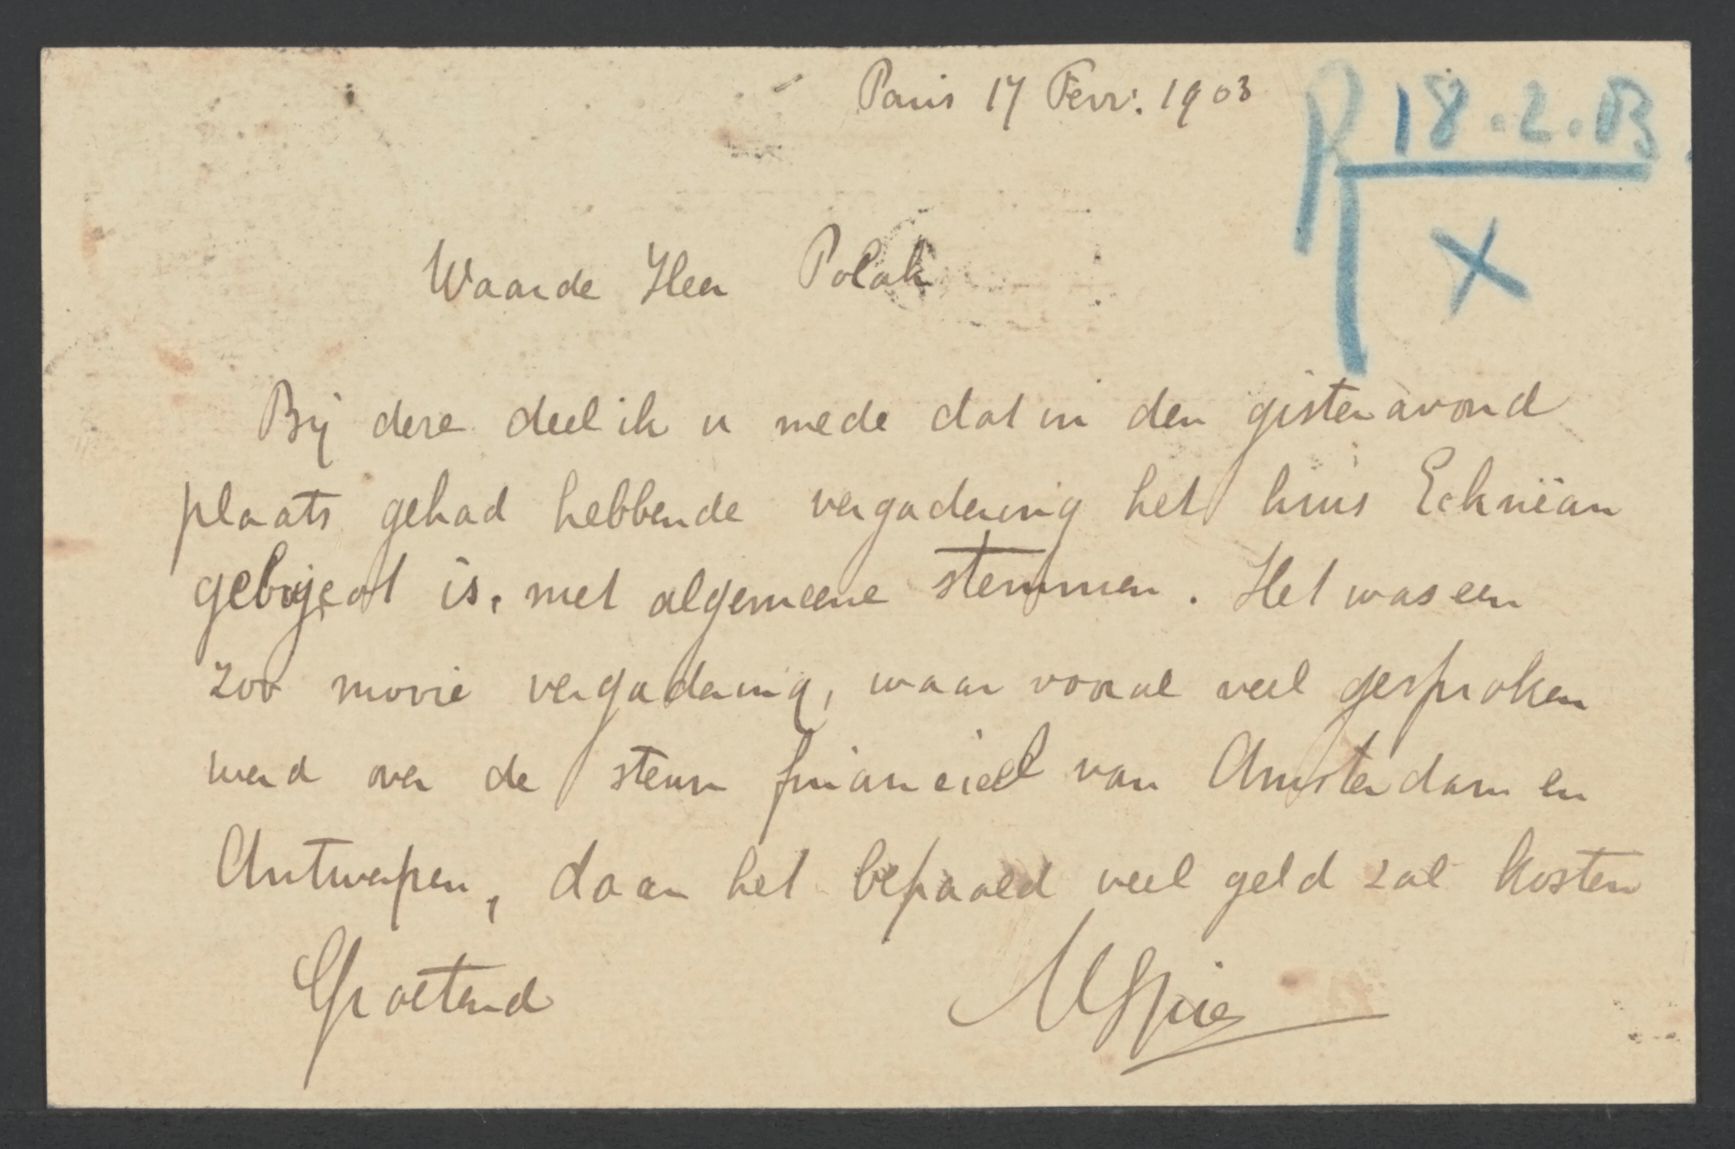 Paris 17 Fevr. 1903
R 18.2.03.
X
Waarde Heer Polak
Bij deze deel ik u mede dat in den gisteravond
plaats gehad hebbende vergadering het huis Ecknëan
is, met algemeene stemmen. Het was een
zoo mooie vergadering, waar vooral veel gesproken
werd over de steun financieel van Amsterdam en
Antwerpen, daar het bepaald veel geld zal kosten
Groetend